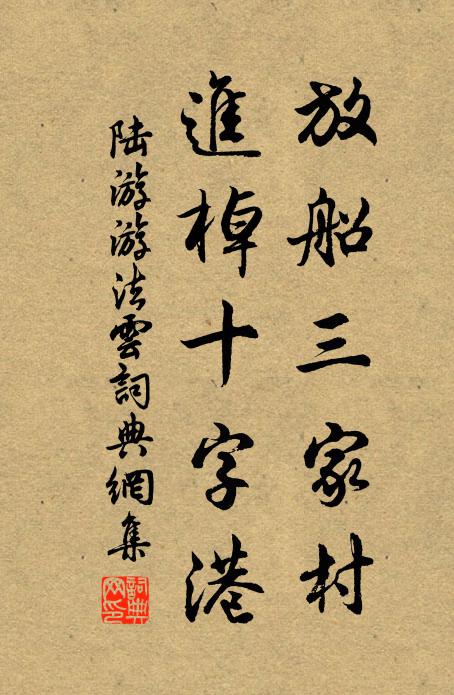 放船三家村
進棹十字港
陆游游法雲詞典網集
詞典網印